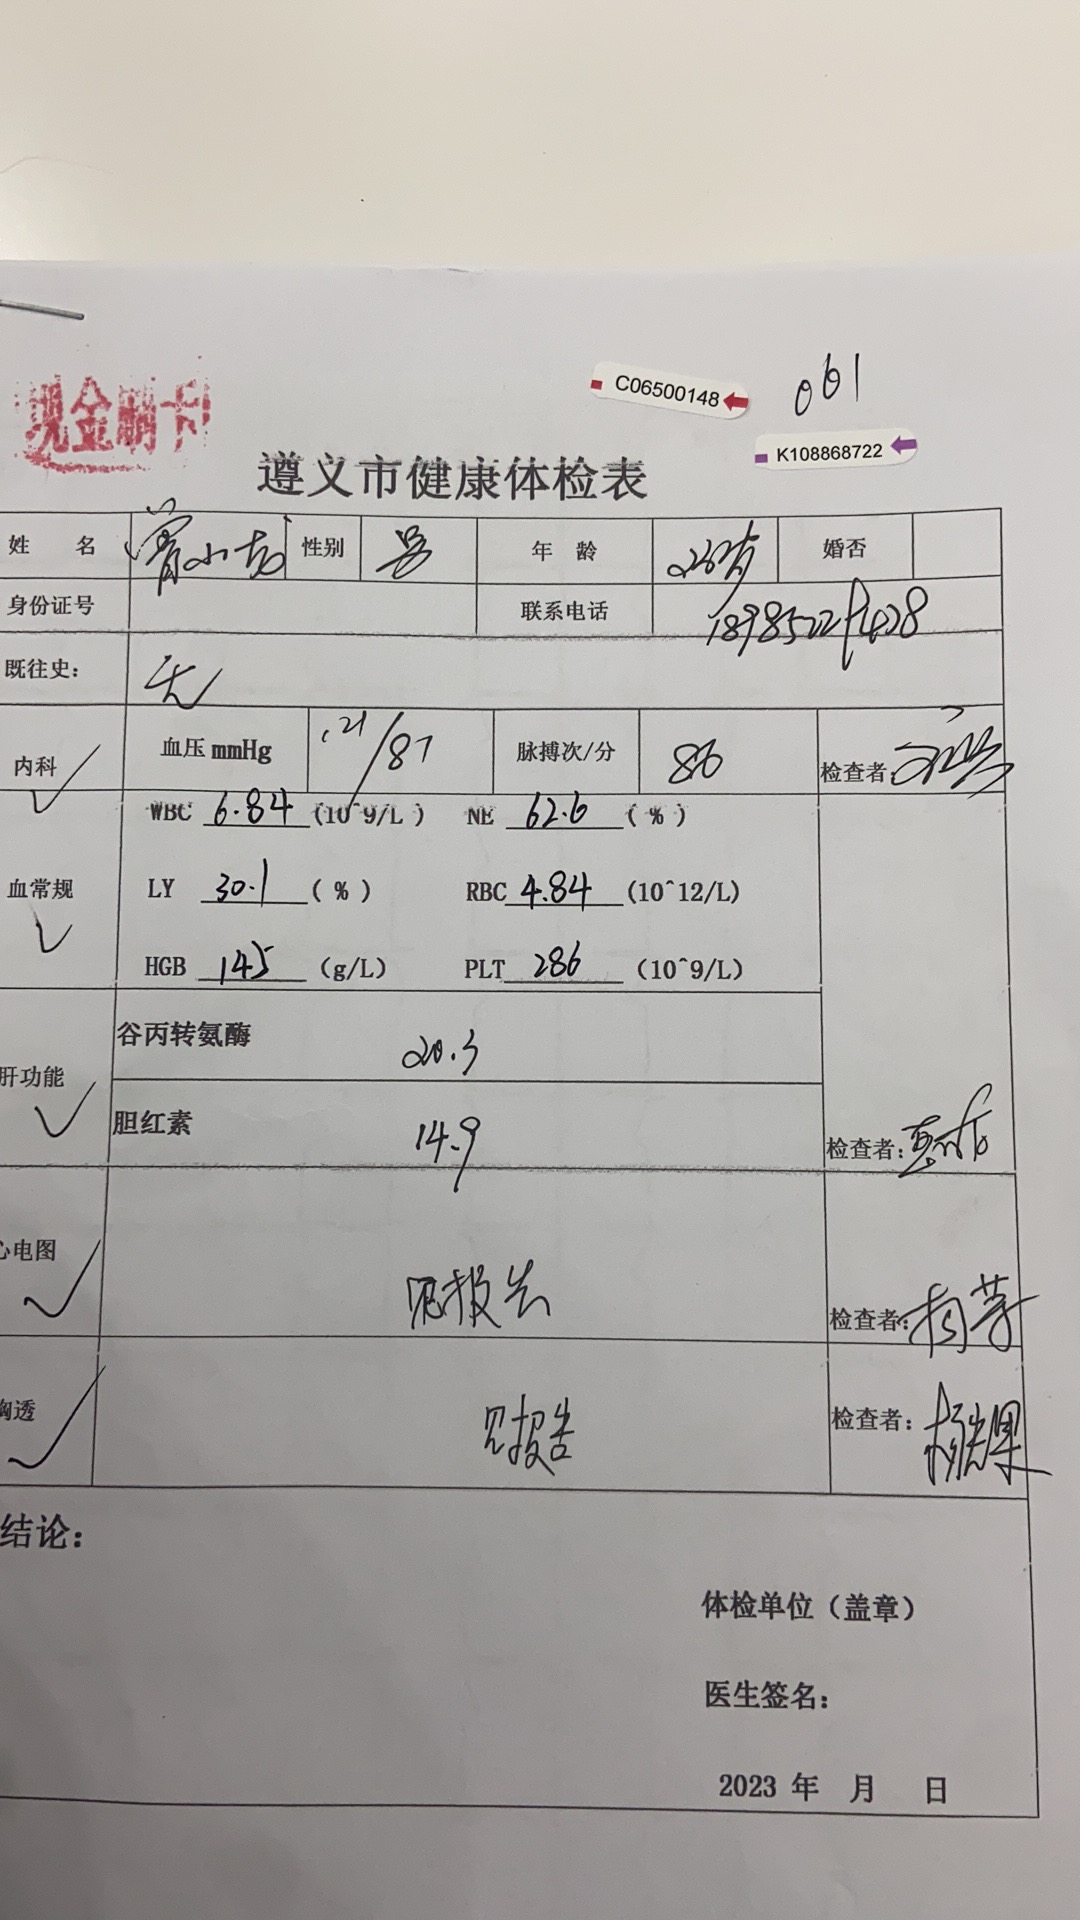 C06500148
061
现金刷卡
K108868722
遵义市健康体检表
姓 名 性别 男 年 龄 婚否
身份证号 联系电话
既往史： 无
内科 血压 mmHg 121/87 脉搏次/分 86 检查者:
WBC 6.84 (10^9/L) NE 62.6 (%)
血常规 LY 30.1 (%) RBC 4.84 (10^12/L)
HGB 145 (g/L) PLT 286 (10^9/L)
谷丙转氨酶 20.3
肝功能
胆红素 14.9 检查者:
心电图 见报告 检查者:
胸透 见报告 检查者:
结论：
体检单位（盖章）
医生签名：
2023 年 月 日